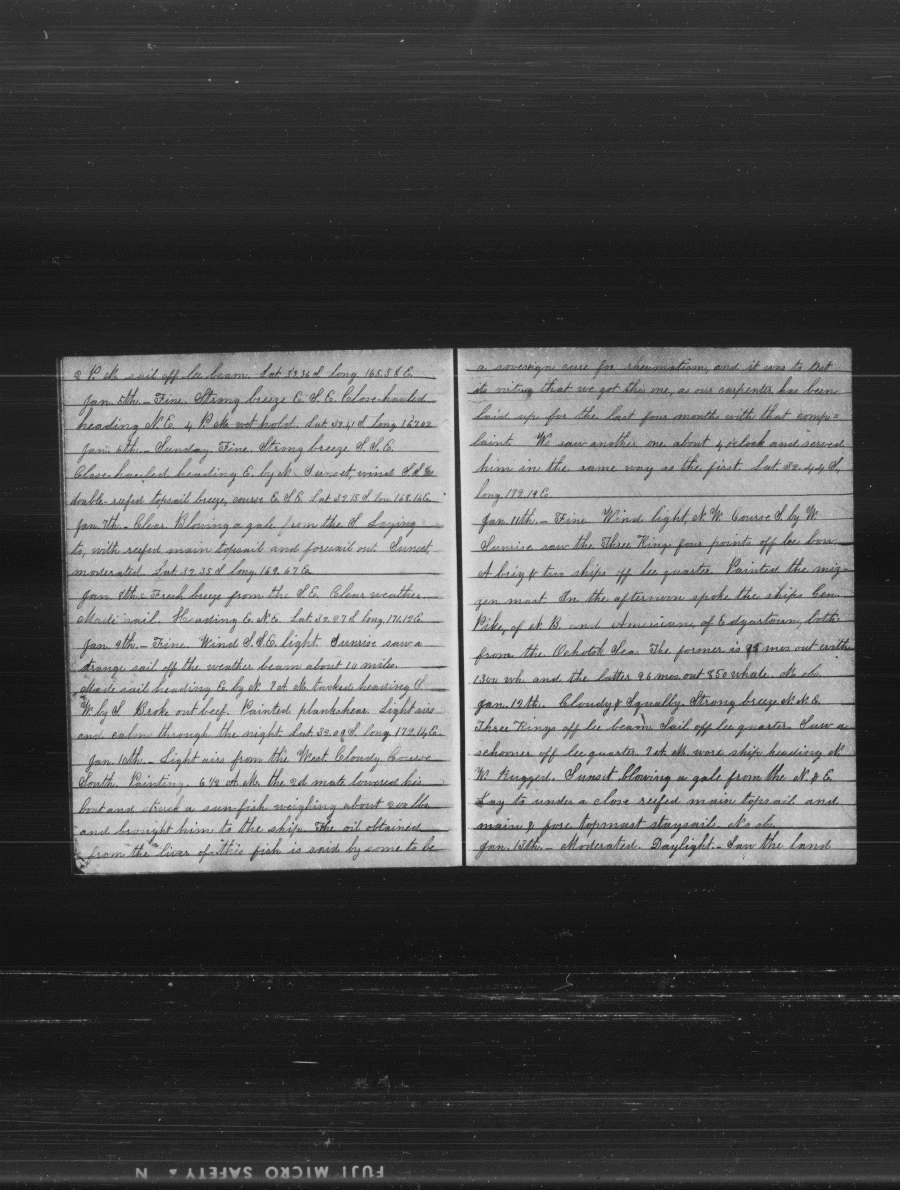 2 P.M. sail off lee beam. Lat 33.36 S long 165.58 E.
Jan. 5th. - Fine. Strong breeze E.S.E. Close hauled
heading N.E. 4 P.M. wet hold. Lat 32.41 S long 167.02
Jan. 6th. - Sunday. Fine. Strong breeze S.S.E.
Close hauled heading E. by N. Sunset, wind S.S.E.
double-reefed topsail breeze, course E.S.E. Lat 32.15 S lon 168.16 E.
Jan. 7th. - Clear. Blowing a gale from the S. Laying
to, with reefed main topsail and foresail out. Sunset
moderated. Lat 32.35 S long. 169.67 E.
Jan 8th. Fresh breeze from the S.E. Clear weather.
Made sail. Heading E.N.E. Lat. 32.27 S long. 171.12 E.
Jan 9th. - Fine. Wind S.S.E. light. Sunrise saw a
strange sail off the weather beam about 10 miles.
Made sail heading E. by N. 7 A.M. tacked heading S.
W. by S. Broke out beef. Painted plankshear. Light airs
and calm through the night Lat 32.29 S. long 172.14 E.
Jan. 10th. - Light airs from the West. Cloudy Course
South. Painting. 6 1/2 A.M. the 2d mate lowered his
boat and struck a sun-fish weighing about 200 lbs
and brought him to the ship. The oil obtained
from the liver of this fish is said by some to be
a sovereign cure for rheumatism, and it was to test
its virtue that we got this one, as our carpenter has been
laid up for the last four months with that comp=
laint. We saw another one about 4 o'clock and served
him in the same way as the first. Lat. 32.44 S,
long 172.19 E.
Jan. 11th. - Fine. Wind light, N.W. Course S. by W.
Sunrise saw the Three Kings four points off lee bow.
A brig & two ships off lee quarter. Painted the miz-
zen mast. In the afternoon spoke the ships Gen
Pike, of N.B. and Americans, of Edgartown, both
from the Ochotsk Sea. The former is 25 mos out with
1300 wh and the latter 26 mos. out 850 whale. No ob.
Jan. 12th. Cloudy & Squally. Strong breeze N.N.E.
Three Kings off lee beam. Sail off lee quarter. Saw a
schooner off lee quarter. 7 A.M. wore ship heading N.
W. Rugged. Sunset blowing a gale from the N. & E.
Lay to under a close reefed main topsail and
main & fore topmast staysail. No ob.
Jan. 13th. - Moderated. Daylight. - Saw the land
FUJI MICRO SAFETY N